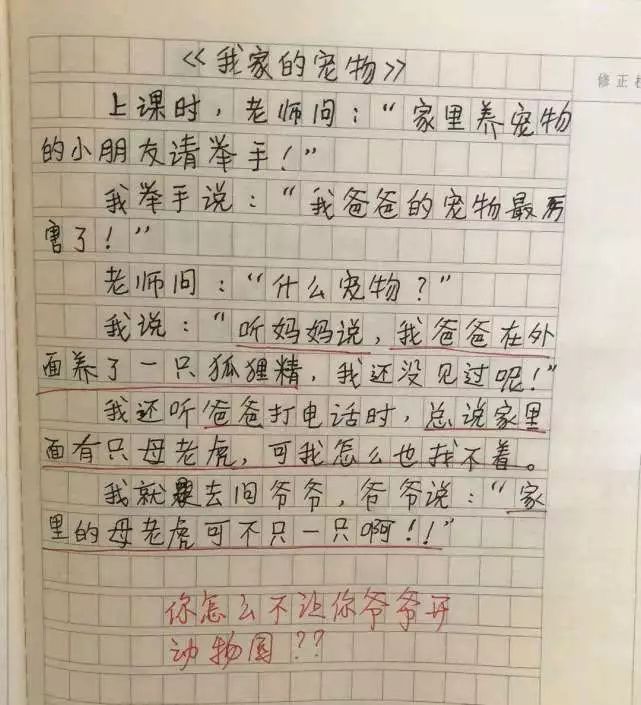 《我家的宠物》
修正栏
上课时，老师问：“家里养宠物
的小朋友请举手！”
我举手说：“我爸爸的宠物最厉
害了！”
老师问：“什么宠物？”
我说：“听妈妈说，我爸爸在外
面养了一只狐狸精，我还没见过呢！”
我还听爸爸打电话时，总说家里
面有只母老虎，可我怎么也找不着。
我就去问爷爷，爷爷说：“家
里的母老虎可不只一只啊！！”
你怎么不让你爷爷开
动物园？？